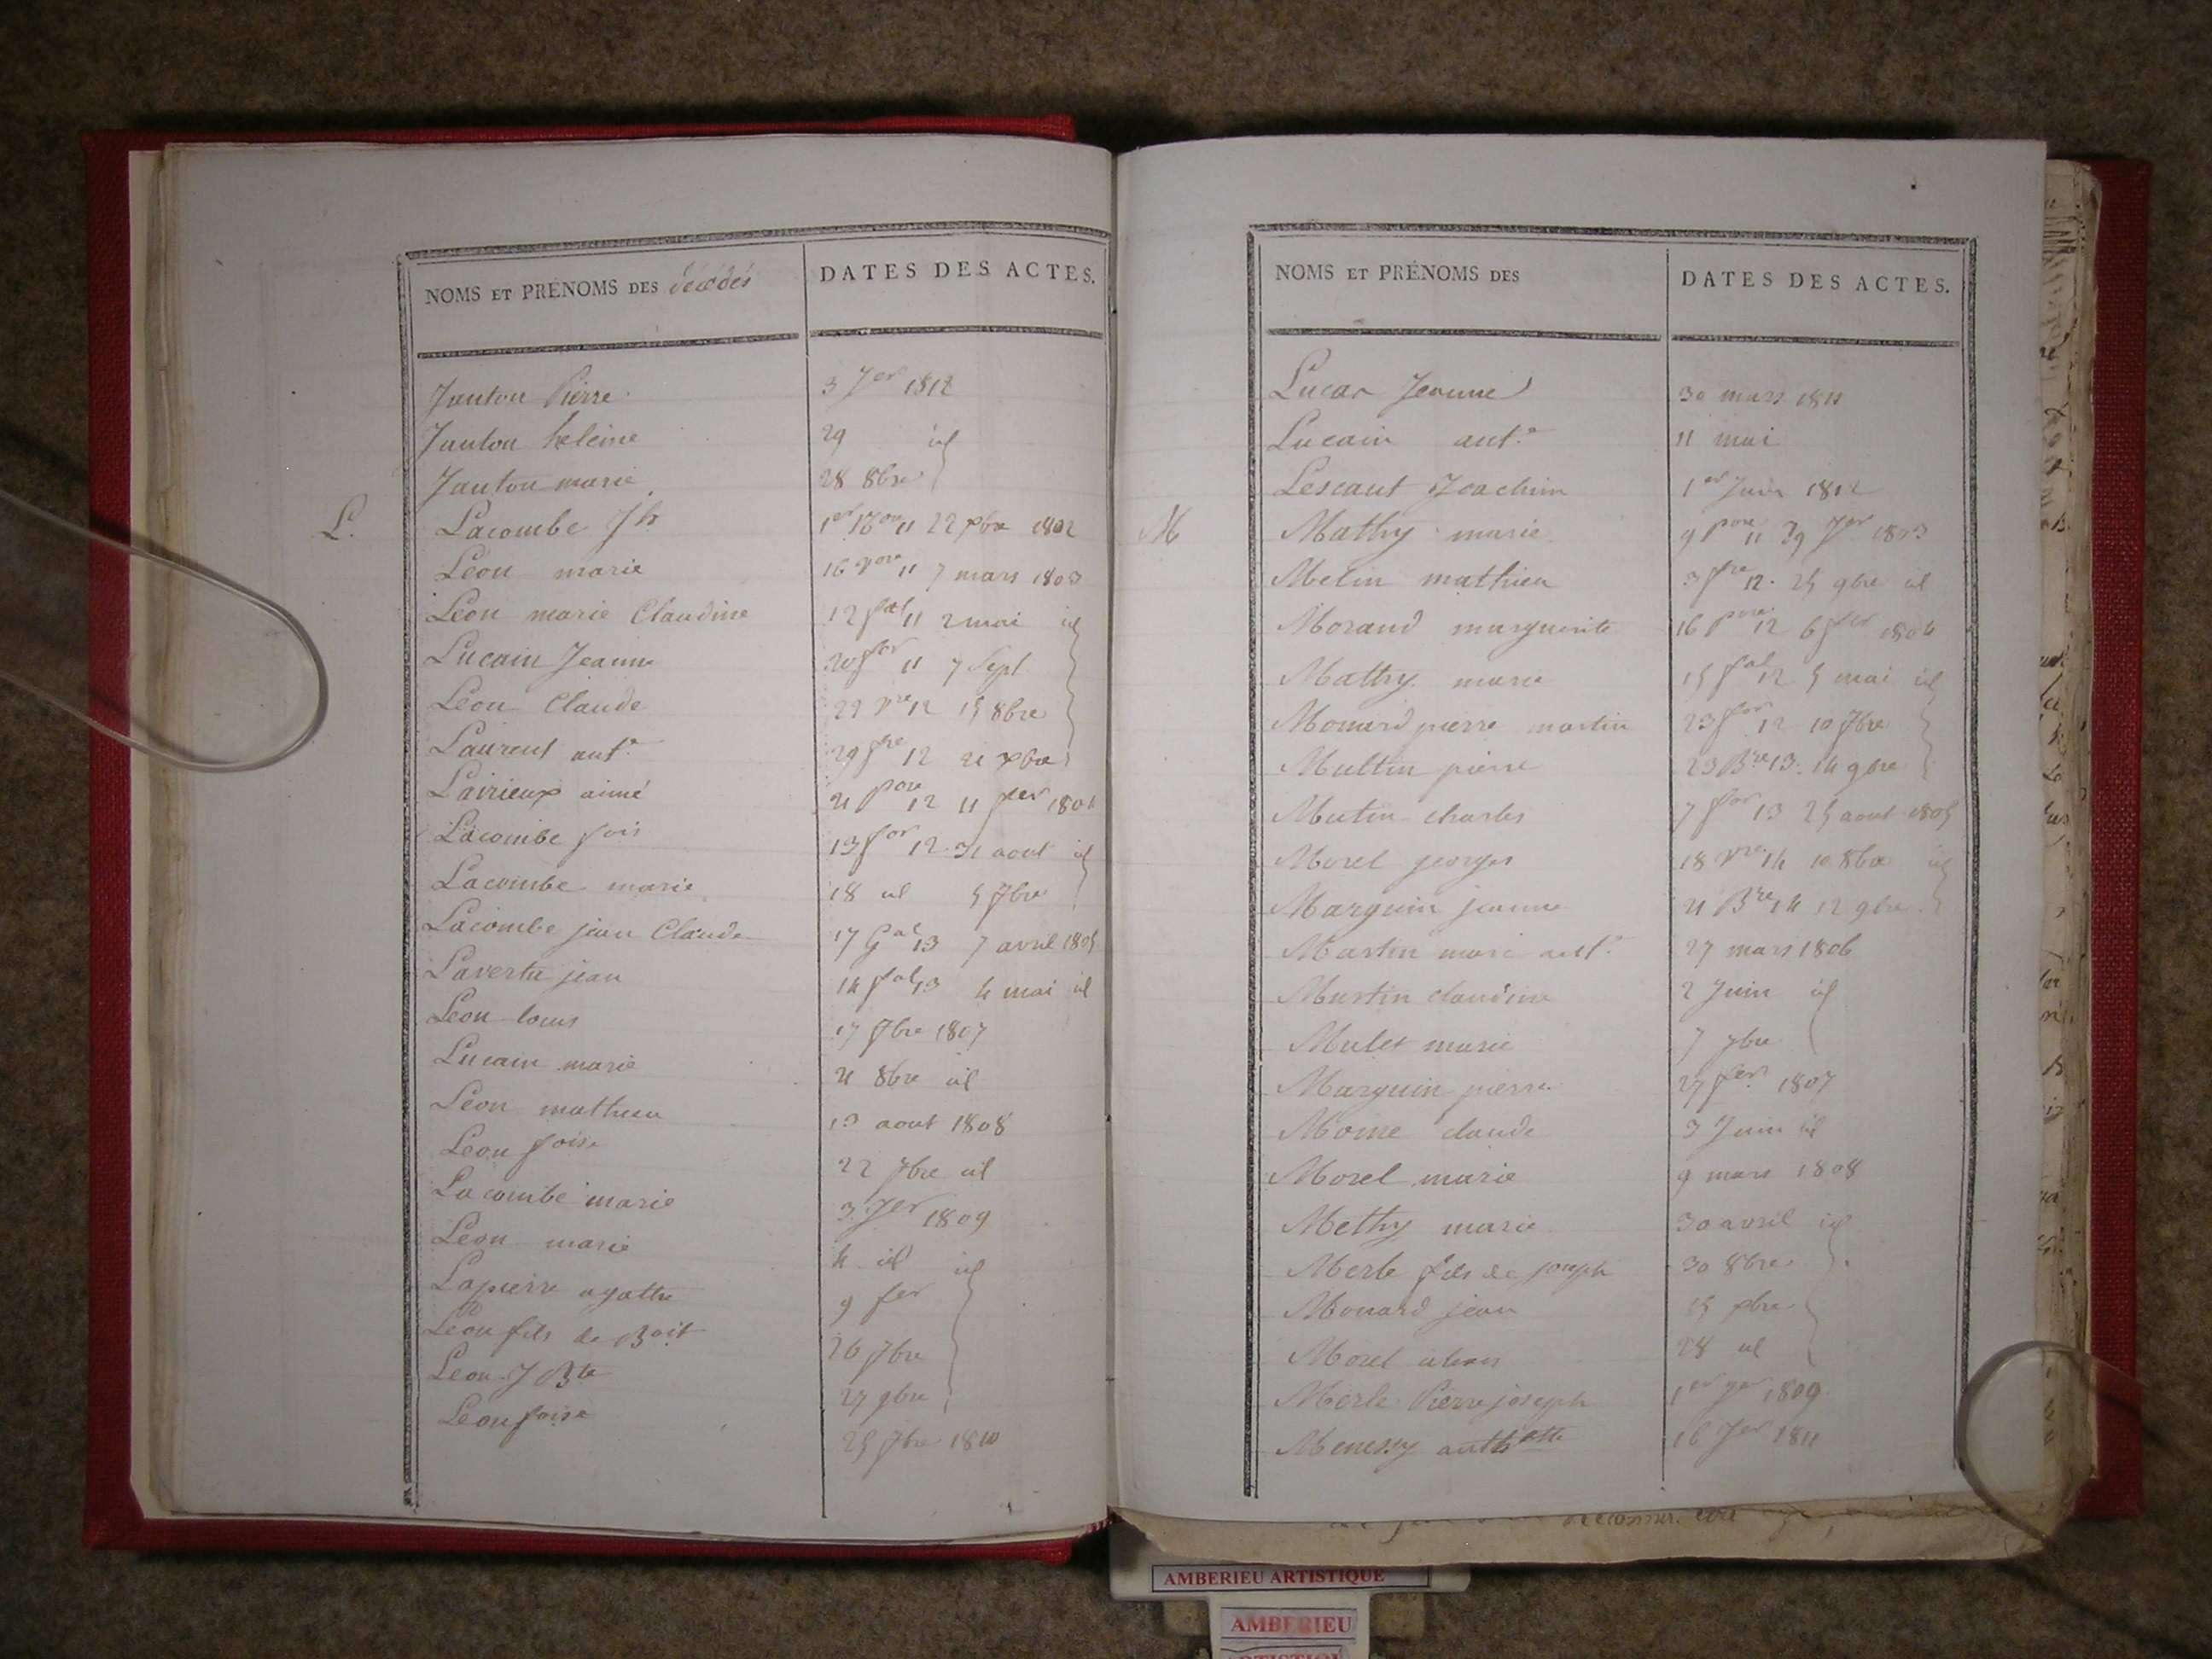 NOMS ET PRÉNOMS DES décédés DATES DES ACTES.
Janton Pierre 3 Jer 1812
Janton heleine 29 id
Janton marie 28 8bre
L. Lacombe Jh 11 22 xbre 1802
Leon marie 16 11 7 mars 1803
Leon marie Claudine 12 fal 11 2 mai id
Lucain Jeanne 20 for 11 7 Sept
Leon Claude 22 vre 12 15 8bre
Laurent ant.e 29 fre 12 21 xbre
Lairieux aimé 21 12 11 fer 1804
Lacombe fois 13 for 12 31 aout id
Lacombe marie 18 id 5 7bre
Lacombe jean Claude 17 Gal 13 7 avril 1805
Lavertu jean 14 fal 13 4 mai id
Leon louis 17 7bre 1807
Lucain marie 21 8bre id
Leon mathieu 13 aout 1808
Leon foise 22 7bre id
Lacombe marie 3 Jer 1809
Leon marie 4 id id
Lapierre agathe 9 fer
Leon fils de Boit 26 7bre
Leon J Bte 27 9bre
Leon foise 25 7bre 1810
NOMS ET PRÉNOMS DES DATES DES ACTES.
Lucas Jeanne 30 mars 1811
Lucain ant.e 11 mai
Lescaut Joachim 1er Juin 1812
M Mathy marie 9 11 Jer 1803
Melin mathieu 3 fre 12. 25 9bre id
Morand marguerite 16 12 6 fer 1804
Mathy marie 15 fal 12 5 mai id
Monard pierre martin 23 for 12 10 7bre
Multin pierre 23 Bre 13. 14 9bre
Mutin charles 7 for 13 25 aout 1805
Morel georges 18 vre 14 10 8bre id
Marguin jeanne 21 Bre 14 12 9bre
Martin marie ant.e 27 mars 1806
Martin claudine 2 Juin id
Mulet marie 7 7bre
Marguin pierre 27 fer 1807
Moine claude 3 Juin id
Morel marie 9 mars 1808
Methy marie 30 avril id
Merle fils de joseph 30 8bre
Monard jean 15 xbre
Morel 28 id
Merle Pierre joseph 1er Jer 1809
Menessy 16 Jer 1811
AMBERIEU ARTISTIQUE
AMBERIEU